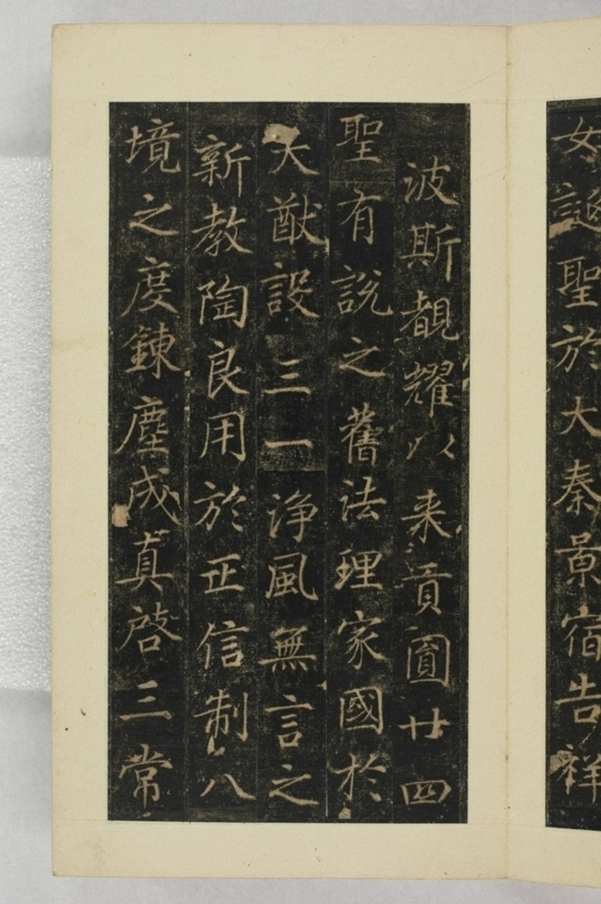 女誕聖於大秦景宿告祥
波斯覩耀以来貢圓廿四
聖有說之舊法理家國於
大猷設三一淨風無言之
新教陶良用於正信制八
境之度鍊塵成真啓三常